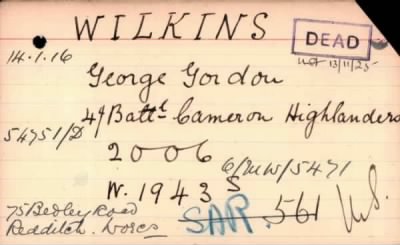 WILKINS
DEAD
14.1.16
George Gordon
4th Battn Cameron Highlanders
54751/D
2006
6/MW/5471
W. 1943 S
75 Beoley Road
Redditch. Worcs
SAR. 561